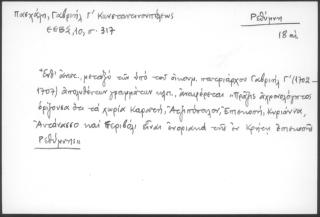 Πασχάλη, Γαβριήλ Γ' Κωνσταντινουπόλεως
ΕΕΒΣ, 10, σ. 317
Ρεθύμνη
18 αἰ.
"Ἐνθ' ἀνωτ. μεταξύ τῶν ὑπό τοῦ οἰκουμ. πατριάρχου Γαβριήλ Γ' (1702-
1707) ἀπολυθέντων γραμμάτων κλπ., ἀναφέρεται "Πρᾶξις ἀχρονολόγητος
ὁρίζουσα ὅτι τά χωρία Καρωτή, Ἀτζιπόπουλον, Ἐπισκοπή, Κυριάννα,
καί Περιβόλι εἶναι ἐνοριακά τῆς ἐν Κρήτῃ ἐπισκοπῆς
Ρεθύμνης"